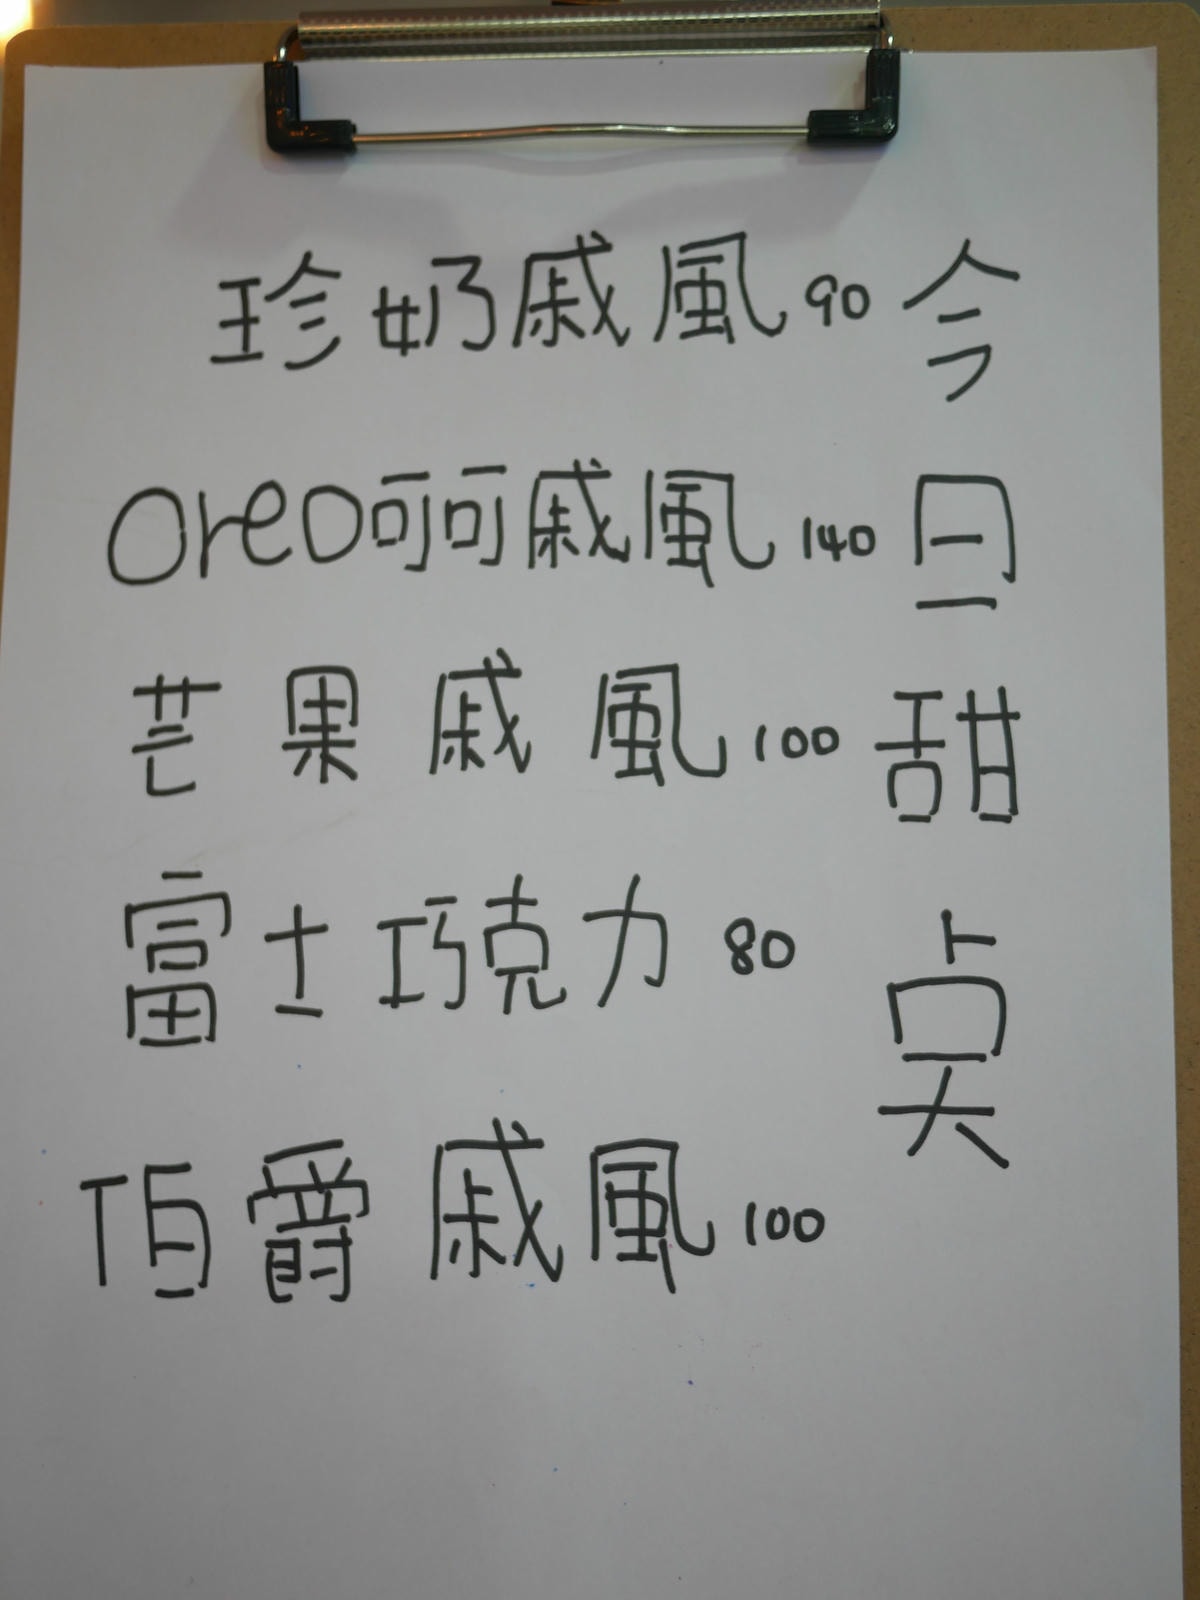 今日甜点
珍奶戚風90
Oreo可可戚風140
芒果戚風100
富士巧克力80
伯爵戚風100